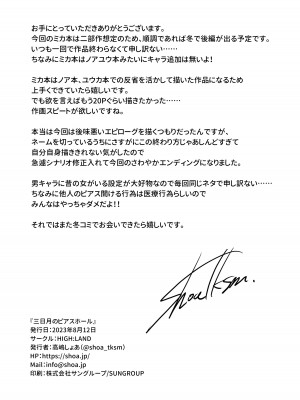 お手にとっていただきありがとうございます。
今回のミカ本は二部作想定のため、順調であれば冬で後編が出る予定です。
いつも一回で作品終わらなくて申し訳ない……
ちなみにミカ本はノアユウ本みたいにキャラ追加は無いよ!
ミカ本はノア本、ユウカ本での反省を活かして描いた作品になるため
上手くできていたら嬉しいです。
でも欲を言えばもう20Pぐらい描きたかった……
作画スピードが欲しいですね。
本当は今回は後味悪いエピローグを描くつもりだったんですが、
ネームを切っているうちにさすがにこの終わり方じゃあしんどすぎて
自分自身描ききれない気がしたので
急遽シナリオ修正入れて今回のさわやかエンディングになりました。
男キャラに昔の女がいる設定が大好物なので毎回同じネタで申し訳ない……
ちなみに他人のピアス開ける行為は医療行為らしいので
みんなはやっちゃダメだよ!!
それではまた冬コミでお会いできたら嬉しいです。
shoa_tksm.
『三日月のピアスホール』
発行日:2023年8月12日
サークル:HIGH:LAND
発行者:高嶋しょあ(@shoa_tksm)
HP:https://shoa.jp/
Mail:info@shoa.jp
印刷:株式会社サングループ/SUNGROUP